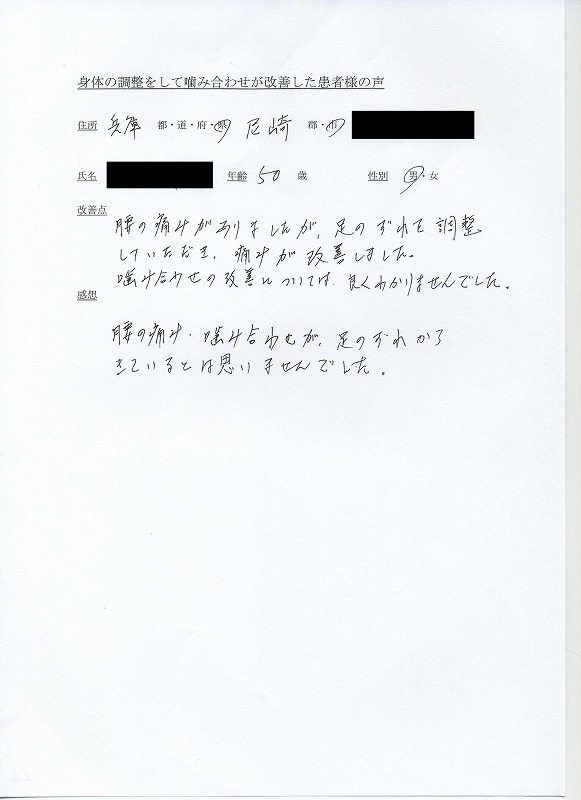 身体の調整をして噛み合わせが改善した患者様の声
住所 兵庫 都・道・府・県 尼崎 郡・市
氏名 年齢 50 歳 性別 男・女
改善点
腰の痛みがありましたが、足のずれを調整
していただき、痛みが改善しました。
噛み合わせの改善については、良くわかりませんでした。
感想
腰の痛み、噛み合わせが、足のずれから
きているとは思いませんでした。